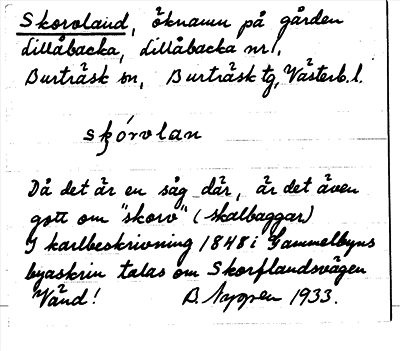 Skorvland, öknamn på gården
Lillåbacka, Lillåbacka nr 1,
Burträsk sn, Burträsk tg, Västerb. l.
skórvlan
Då det är en såg där, är det även
gott om "skorv" (skalbaggar)
I karlbeskrivning 1848 i Gammelbyns
byaskrin talas om Skorflandsvägen
Vänd! B. Nyppen 1933.